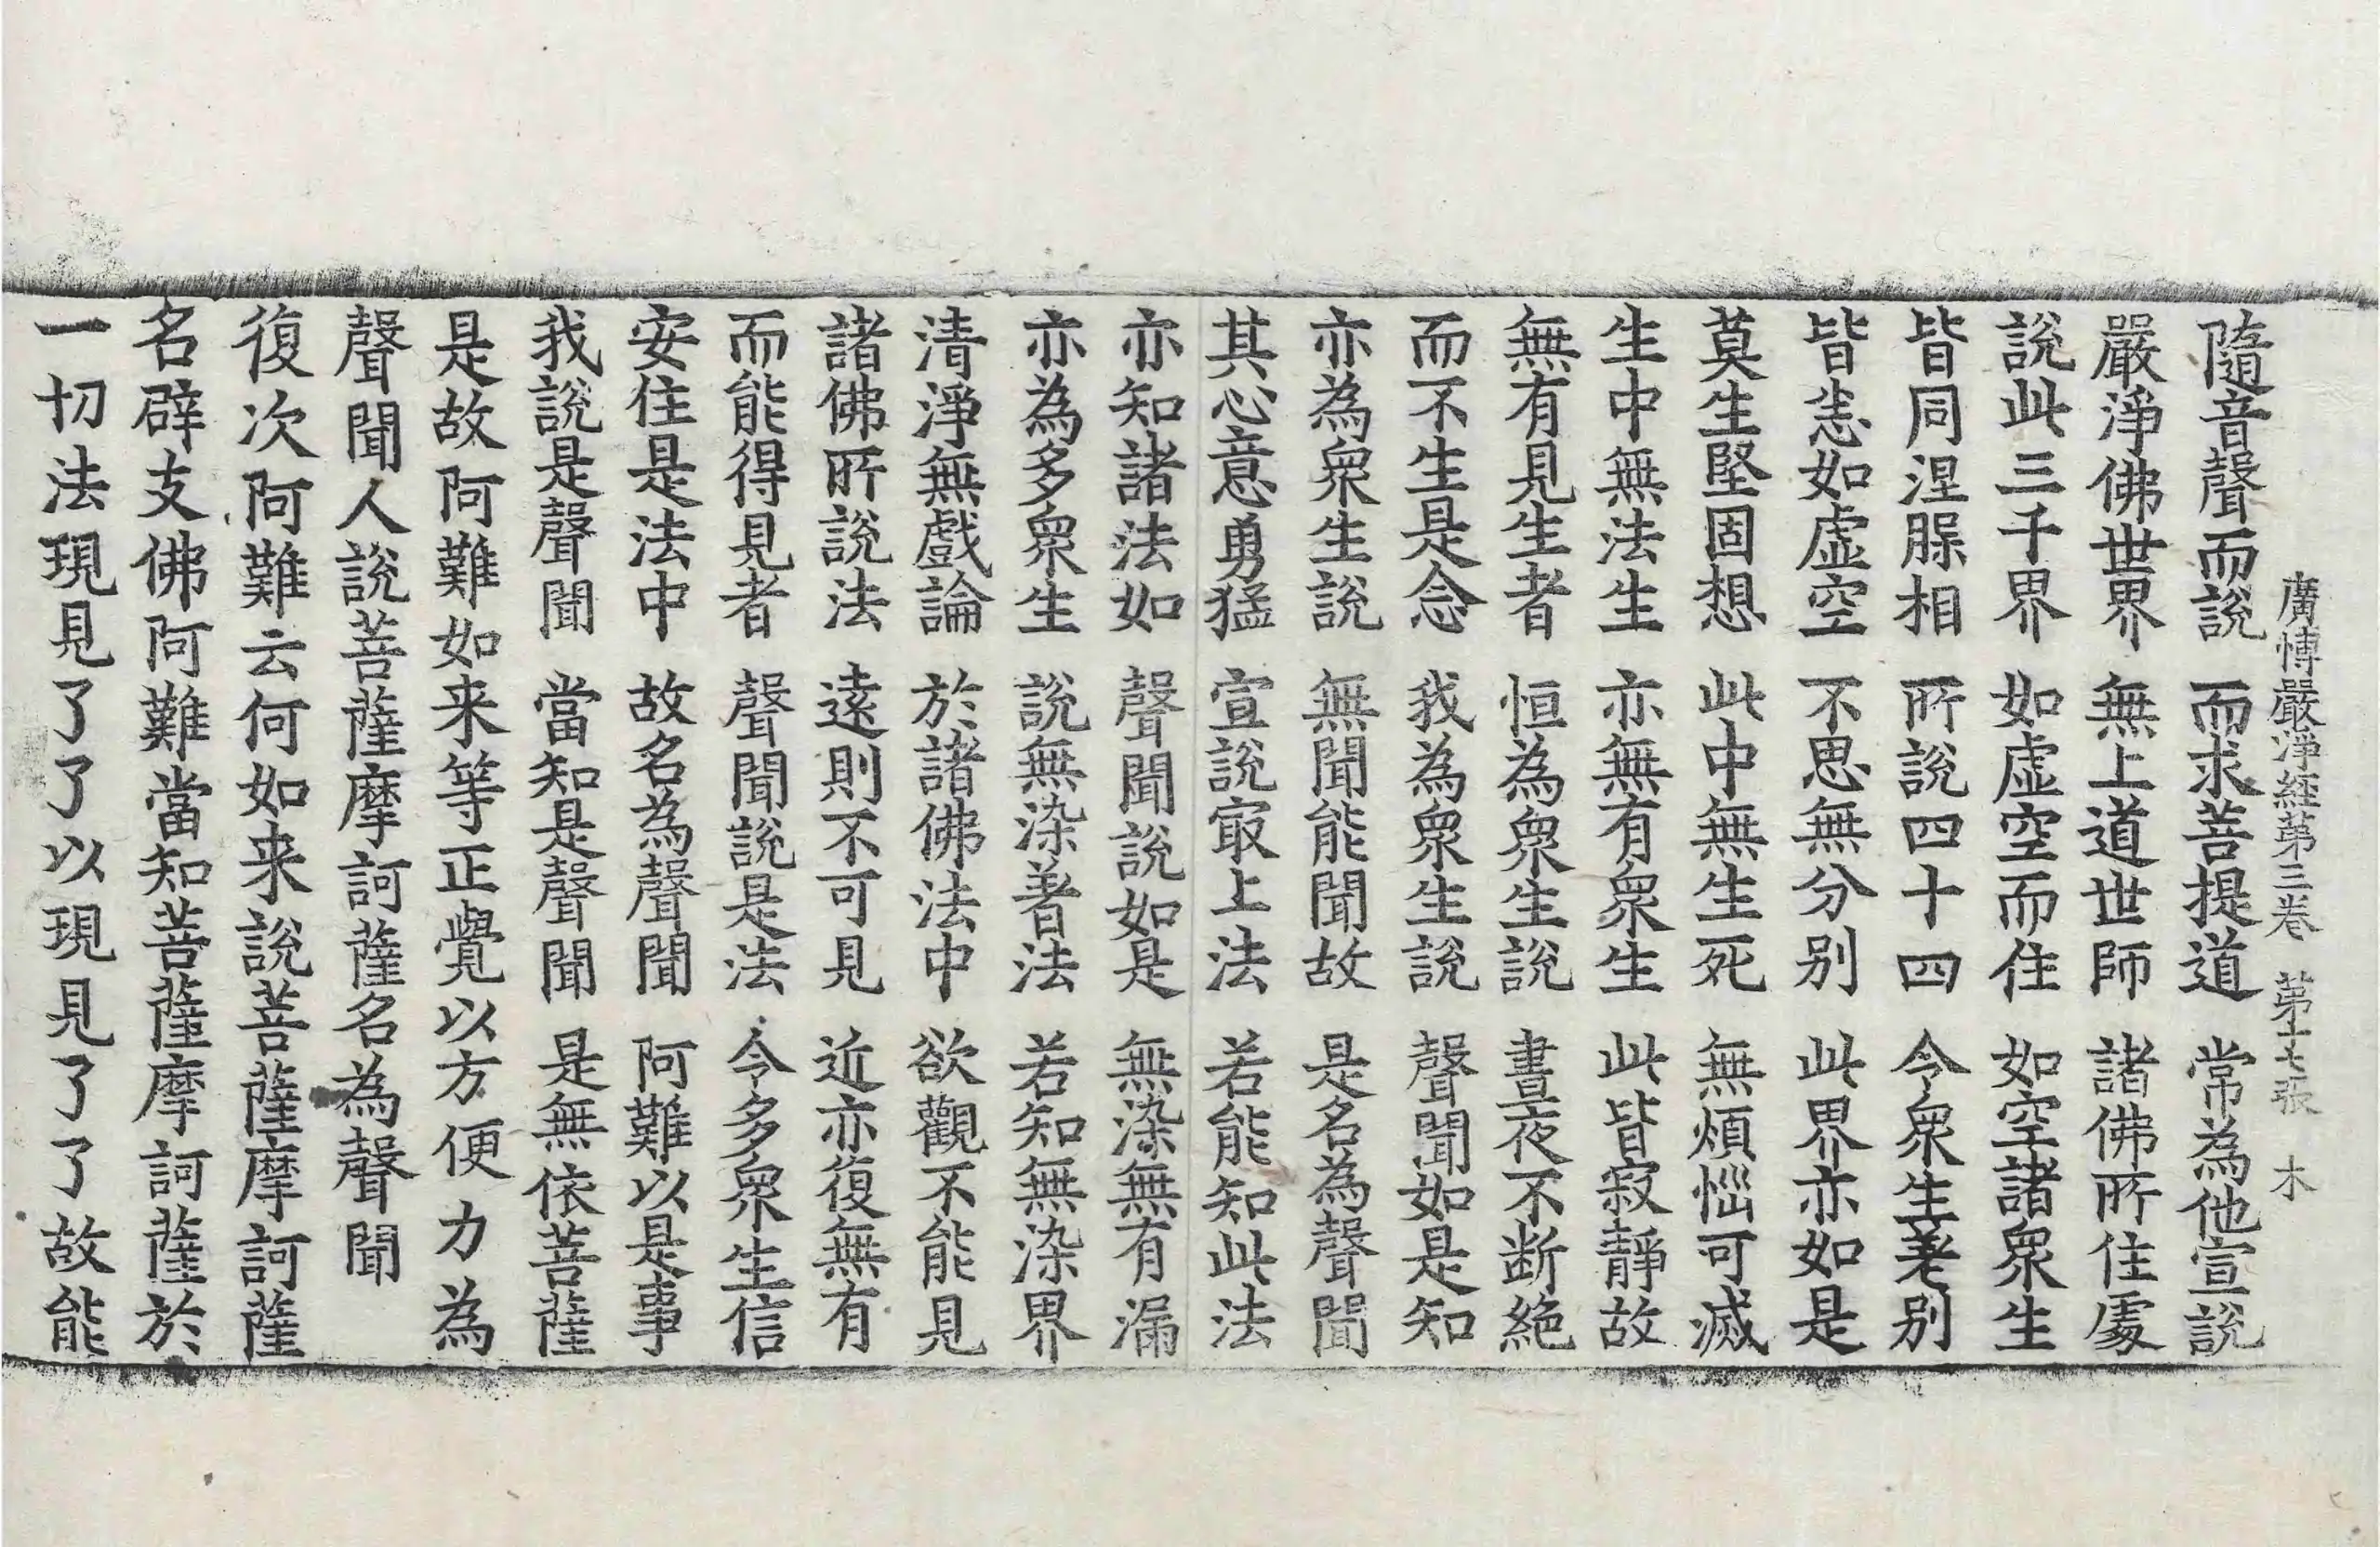 廣博嚴淨經第三卷　第十七張　木
隨音聲而說　而求菩提道　常為他宣說
嚴淨佛世界　無上道世師　諸佛所住處
說此三千界　如虛空而住　如空諸衆生
皆同涅槃相　所說四十四　令衆生差別
皆悉如虛空　不思無分別　此界亦如是
莫生堅固想　此中無生死　無煩惱可滅
生中無法生　亦無有衆生　此皆寂靜故
無有見生者　恒為衆生說　晝夜不斷絕
而不生是念　我為衆生說　聲聞如是知
亦為衆生說　無聞能聞故　是名為聲聞
其心意勇猛　宣說冣上法　若能知此法
亦知諸法如　聲聞說如是　無染無有漏
亦為多衆生　說無染著法　若知無染界
清淨無戲論　於諸佛法中　欲觀不能見
諸佛所說法　遠則不可見　近亦復無有
而能得見者　聲聞說是法　令多衆生信
安住是法中　故名為聲聞　阿難以是事
我說是聲聞　當知是聲聞　是無依菩薩
是故阿難如来等正覺以方便力為
聲聞人說菩薩摩訶薩名為聲聞
復次阿難云何如来說菩薩摩訶薩
名辟支佛阿難當知菩薩摩訶薩於
一切法現見了了以現見了了故能